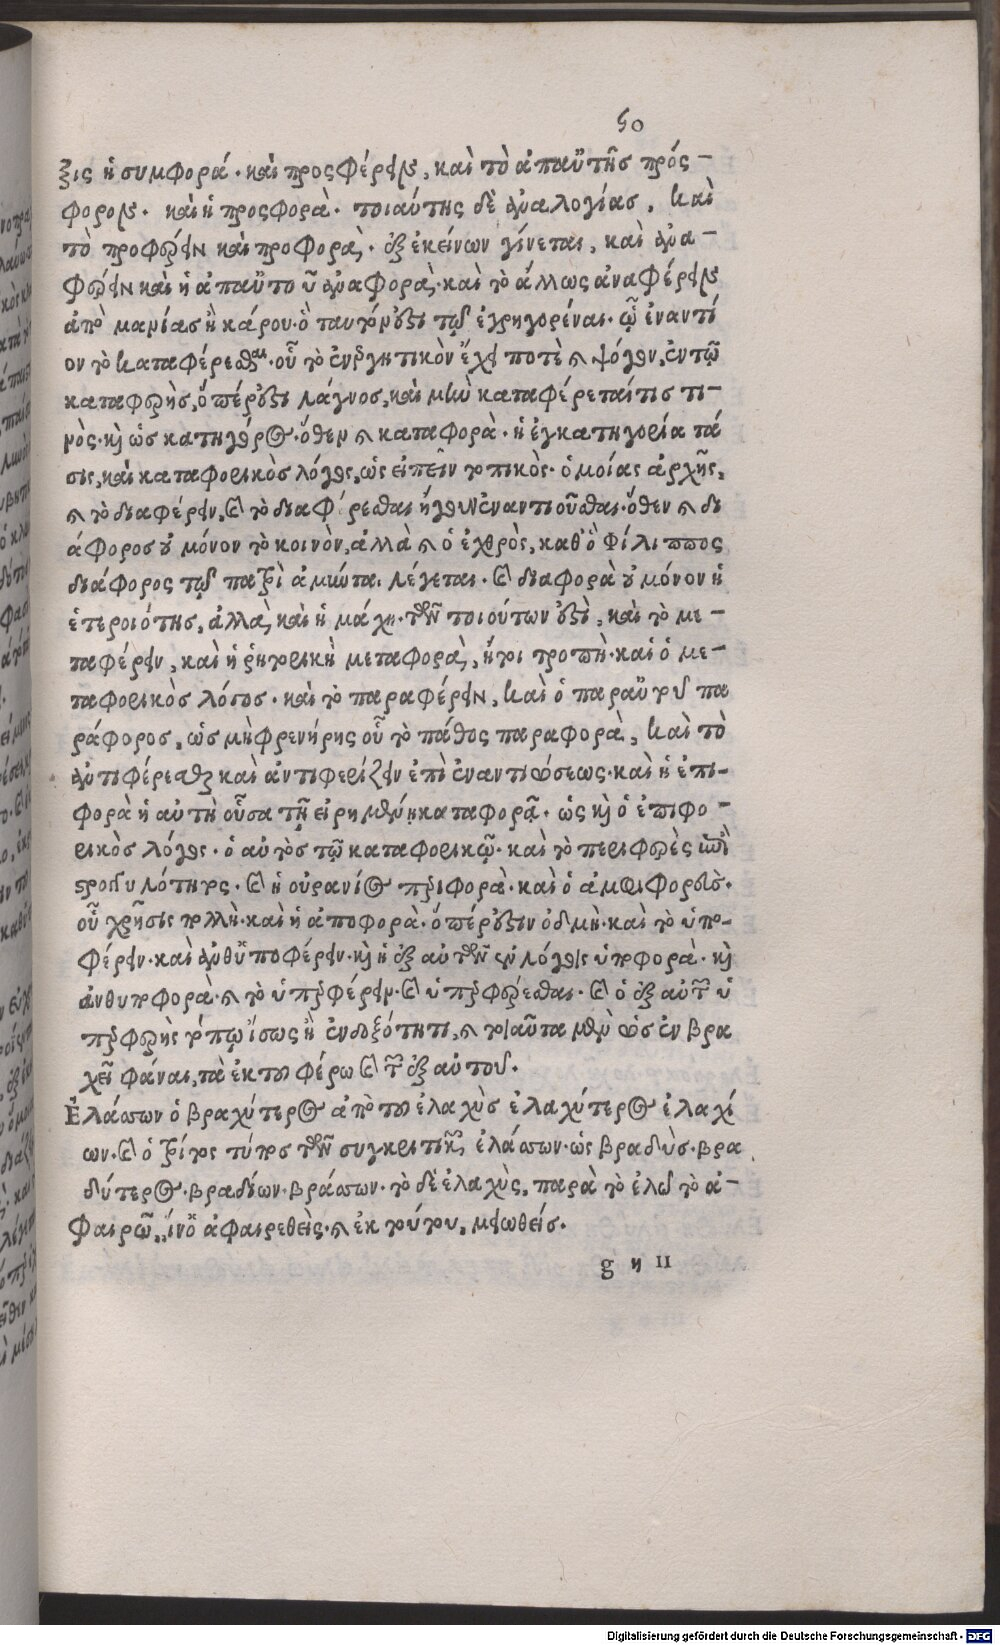 50
ξις ἡ συμφορά. καὶ προσφέρειν, καὶ τὸ ἀπαὐτῆς πρόσ-
φορον. καὶ ἡ προσφορὰ. τοιαύτης δὲ ἀναλογίας, καὶ
τὸ προφέρειν καὶ προφορὰ, ἐξ ἐκείνων γίνεται, καὶ ἀνα-
φέρειν καὶ ἡ ἀπαὐτοῦ ἀναφορὰ, καὶ τὸ ἄλλως ἀναφέρειν
ἀπὸ μανίας ἢ κάρου. ὃ ταυτόν ἐστι τῷ ἐγρηγορέναι. ᾧ ἐναντί
ον τὸ καταφέρεσθαι. οὗ τὸ ἐνεργητικὸν ἔχει ποτὲ καὶ ψόγον, ἐν τῷ
καταφερὴς, ὅπέρ ἐστι λάγνος, καὶ μὴν καταφέρεταί τις τι-
νὸς. καὶ ὡς κατηγόρος. ὅθεν καὶ καταφορὰ. ἡ ἐγκατηγορία τά
σις, καὶ καταφορικὸς λόγος, ὡς εἰπεῖν τοπικὸς. ὁμοίας ἀρχῆς,
καὶ τὸ διαφέρειν, καὶ τὸ διαφέρεσθαι ἤγουν ἐναντιοῦσθαι. ὅθεν καὶ δι
άφορος οὐ μόνον τὸ κοινὸν, ἀλλὰ καὶ ὁ ἐχθρὸς, καθ' ὃ Φίλιππος
διάφορος τῷ πατρὶ ἀμύντα. λέγεται. καὶ διαφορὰ οὐ μόνον ἡ
ἑτεροιότης, ἀλλὰ, καὶ ἡ μάχη. τῶν τοιούτων ἐστὶ, καὶ τὸ με-
ταφέρειν, καὶ ἡ ῥητορικὴ μεταφορὰ, ἤτοι τροπὴ. καὶ ὁ με-
ταφορικὸς λόγος. καὶ τὸ παραφέρειν, καὶ ὁ παραὐτοῦ πα
ράφορος, ὡς μὴ φρενήρης οὗ τὸ πάθος παραφορὰ, καὶ τὸ
ἀντιφέρεσθαι καὶ ἀντιφερίζειν ἐπὶ ἐναντιώσεως. καὶ ἡ ἐπι-
φορὰ ἡ αὐτὴ οὖσα τῇ εἰρημένῃ καταφορᾷ. ὡς καὶ ὁ ἐπιφο-
ρικὸς λόγος. ὁ αὐτὸς τῷ καταφορικῷ. καὶ τὸ περιφερὲς ἐπὶ
στρογγυλότητος. καὶ ἡ οὐράνιος περιφορὰ. καὶ ὁ ἀμφιφορεὺς.
οὗ χρῆσις πολλὴ. καὶ ἡ ἀποφορὰ. ὅπέρ ἐστιν ὀδμὴ. καὶ τὸ ὑπο-
φέρειν. καὶ ἀνθυποφέρειν. καὶ ἡ ἐξ αὐτῶν ἐν λόγοις ὑποφορὰ. καὶ
ἀνθυποφορὰ. καὶ τὸ ὑπερφέρειν. καὶ ὑπερφέρεσθαι. καὶ ὁ ἐξ αὐτοῦ ὑ
περφερὴς τόπῳ ἴσως ἢ ἐνδοξότητι, καὶ ταῦτα μὲν ὡς ἐν βρα
χεῖ φάναι, τὰ ἐκ τοῦ φέρω καὶ τοῦ ἐξ αὐτοῦ.
Ἐλάσσων ὁ βραχύτερος ἀπὸ τοῦ ἐλαχὺς ἐλαχύτερος ἐλαχί
ων. καὶ ὁ τρίτος τύπος τῶν συγκριτικῶν, ἐλάσσων. ὡς βραδὺς. βρα
δύτερος. βραδίων. βράσσων. τὸ δὲ ἐλαχὺς, παρὰ τὸ ἐλῶ τὸ ἀ-
φαιρῶ, ἵν' ὃ ἀφαιρεθεὶς. καὶ ἐκ τούτου, μειωθείς.
g η II
Digitalisierung gefördert durch die Deutsche Forschungsgemeinschaft - DFG